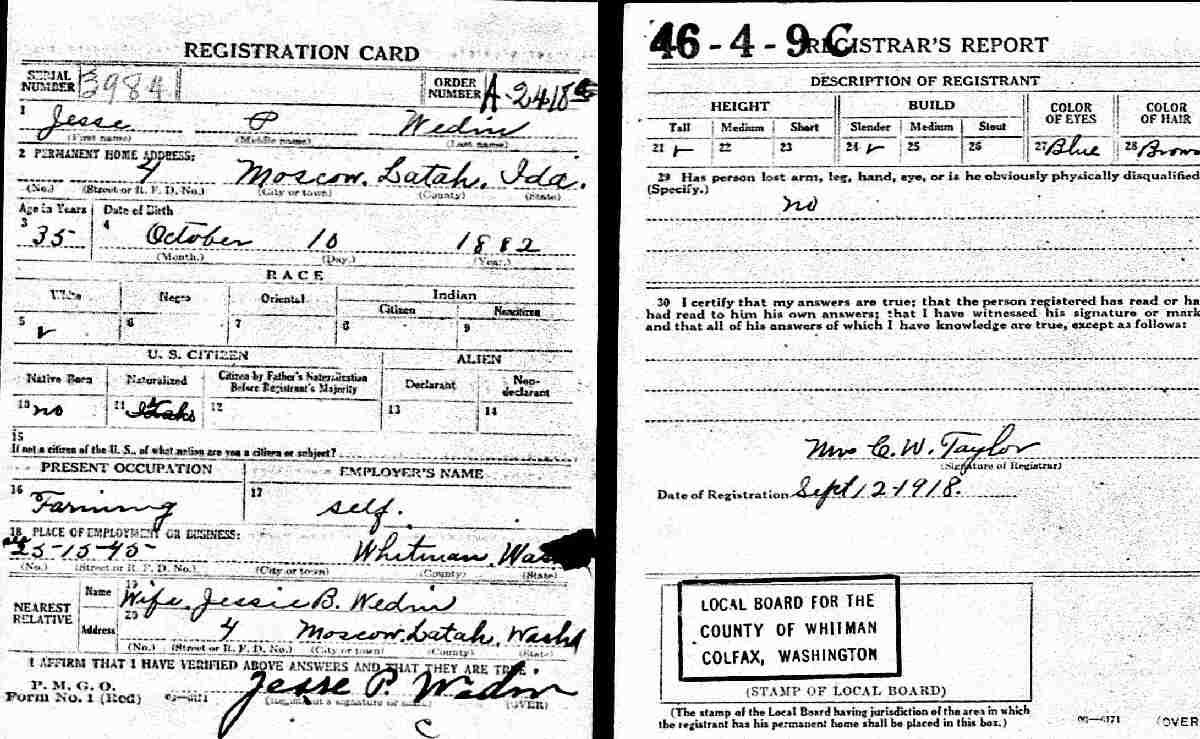 REGISTRATION CARD
SERIAL NUMBER 3984 ORDER NUMBER A-2418
1 Jesse P Wedin
(First name) (Middle name) (Last name)
2 PERMANENT HOME ADDRESS:
4 Moscow, Latah, Ida.
(No.) (Street or R. F. D. No.) (City or town) (County) (State)
Age in Years Date of Birth
3 35 4 October 10 1882
(Month.) (Day.) (Year.)
RACE
White Negro Oriental Indian
Citizen Noncitizen
5 ✓ 6 7 8 9
U. S. CITIZEN ALIEN
Native Born Naturalized Citizen by Father's Naturalization Before Registrant's Majority Declarant Non-declarant
10 no 11 12 13 14
15
If not a citizen of the U. S., of what nation are you a citizen or subject?
PRESENT OCCUPATION EMPLOYER'S NAME
16 Farming 17 self.
18 PLACE OF EMPLOYMENT OR BUSINESS:
25-15-45 Whitman, Wash
(No.) (Street or R. F. D. No.) (City or town) (County) (State)
NEAREST RELATIVE Name 19 Wife, Jessie B. Wedin
Address 20 4 Moscow, Latah, Wash
(No.) (Street or R. F. D. No.) (City or town) (County) (State)
I AFFIRM THAT I HAVE VERIFIED ABOVE ANSWERS AND THAT THEY ARE TRUE
P. M. G. O.
Form No. 1 (Red) 03-6171 Jesse P. Wedin
(Registrant's signature or mark) (OVER)
C
46-4-9 C REGISTRAR'S REPORT
DESCRIPTION OF REGISTRANT
HEIGHT BUILD COLOR OF EYES COLOR OF HAIR
Tall Medium Short Slender Medium Stout
21 ✓ 22 23 24 ✓ 25 26 27 Blue 28 Brown
29 Has person lost arm, leg, hand, eye, or is he obviously physically disqualified
(Specify.)
no
30 I certify that my answers are true; that the person registered has read or ha
had read to him his own answers; that I have witnessed his signature or mark
and that all of his answers of which I have knowledge are true, except as follows:
Mrs C. W. Taylor
(Signature of Registrar)
Date of Registration Sept 12-1918.
LOCAL BOARD FOR THE
COUNTY OF WHITMAN
COLFAX, WASHINGTON
(STAMP OF LOCAL BOARD)
(The stamp of the Local Board having jurisdiction of the area in which
the registrant has his permanent home shall be placed in this box.)
03-6171 (OVER